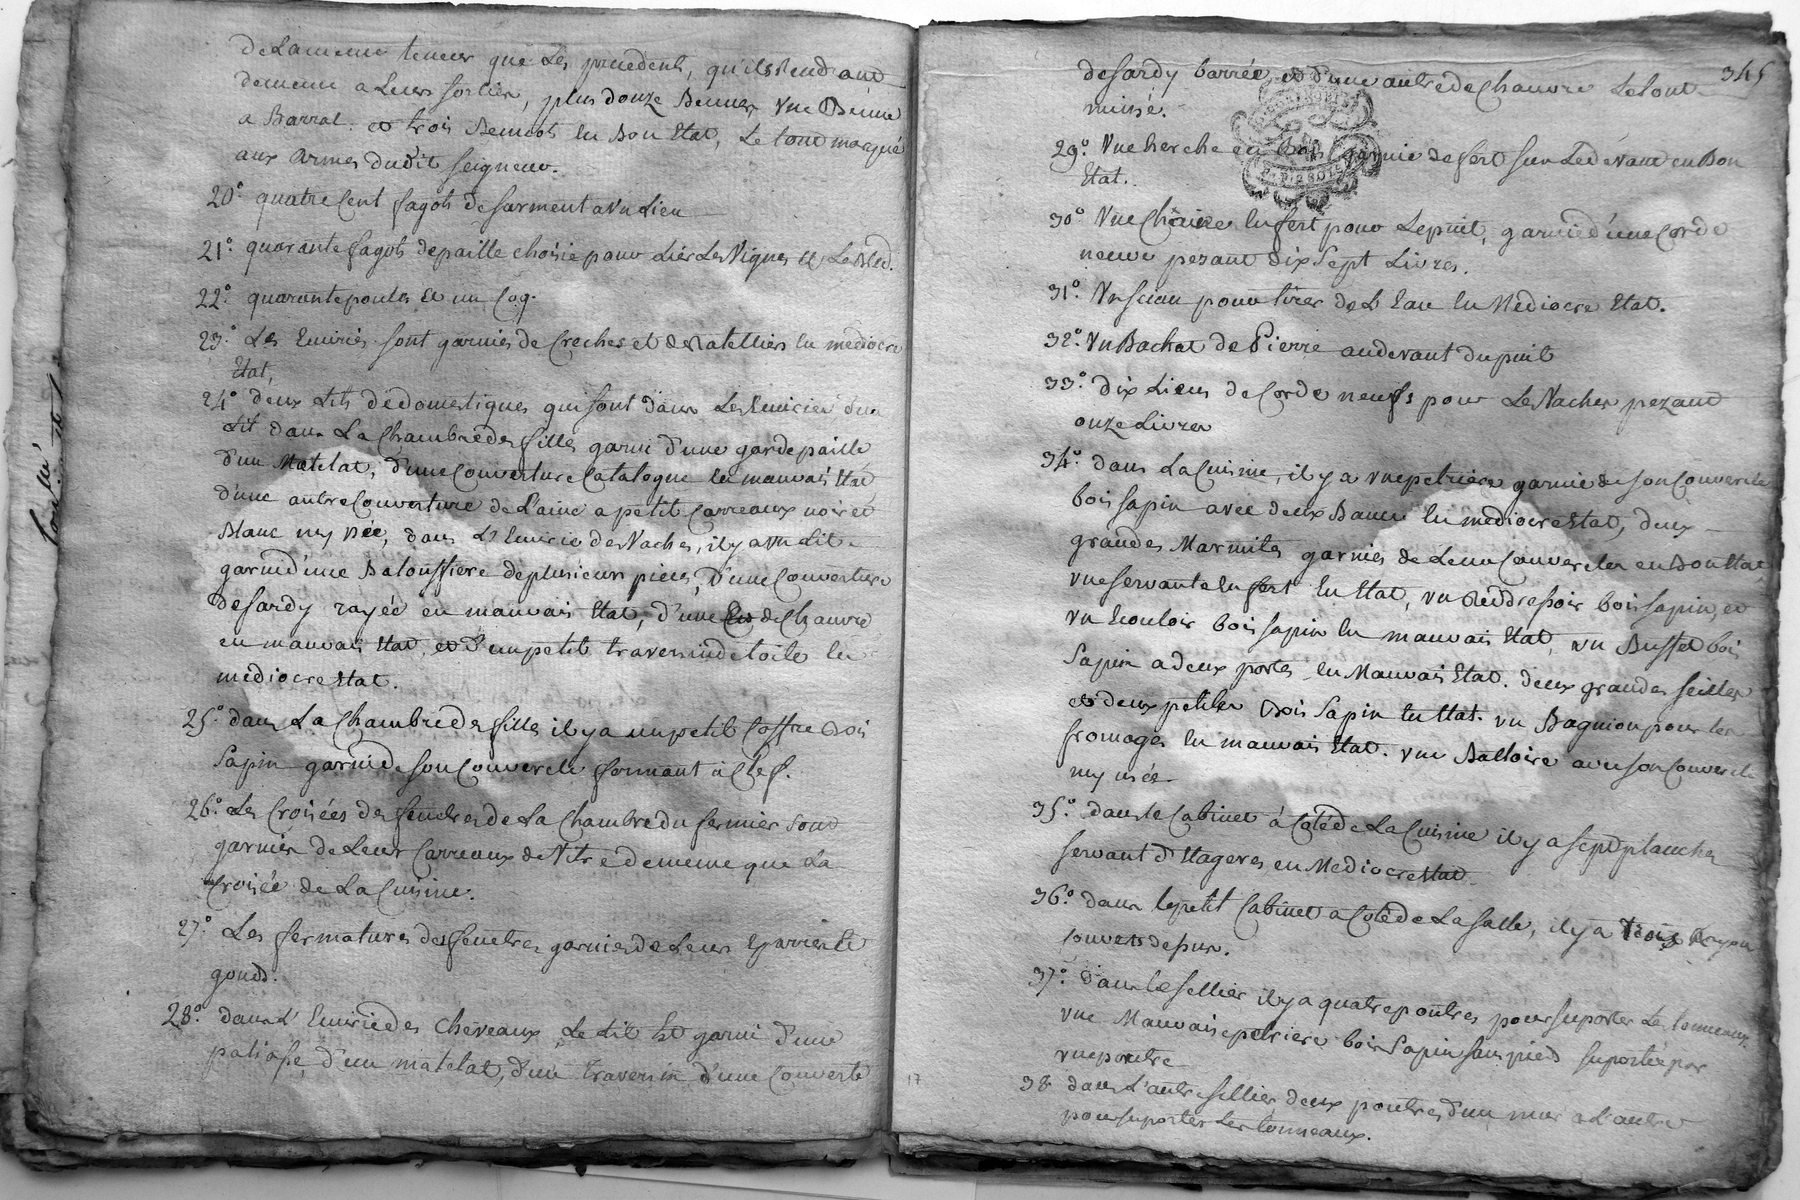 de La meme teneur que Les precedents, qu'ils Rendront
de meme a Leur sortie, plus douze Bennes, vne Benne
a Barral. et trois Bennots En Bon Etat, Le tout marqué
aux Armes dudit seigneur.
20° quatre Cent fagots de sarment a vn Lien
21° quarante fagots de paille choisie pour Lier Les Vignes et Le Bled.
22° quarante poules Et un Coq.
23° Les Ecuries sont garnies de Creches et de Ratelliers En mediocre
Etat,
24° deux Lits de domestiques qui sont dans Les Ecuries Un
Lit dans La Chambre des filles garni d'une gardepaille
d'un Matelat, d'une Couverture Catalogne En mauvais Etat
d'une autre Couverture de Laine a petit Carreaux noir et
Blanc my usée, dans L'Ecurie des Vaches, il y a vn Lit
garni d'une Baloussiere de plusieurs pieces, d'une Couverture
de sardy rayée en mauvais Etat, d'une de Chanvre
en mauvais Etat, et d'un petit traversin de toile En
mediocre Etat.
25° dans La Chambre des filles il y a un petit Coffre Bois
Sapin garni de son Couvercle fermant à Clef.
26° Les Croisées des fenêtres de La Chambre du fermier sont
garnies de Leur Carreaux de Vitre de meme que La
Croisée de La Cuisine.
27° Les fermatures des fenêtres garnies de Leurs Eparres Et
gonds.
28° dans L'Ecurie des Chevaux, Le Lit Est garni d'une
paliasse, d'un matelat, d'un traversin d'une Couverte
345
de sardy barrée, et d'une autre de Chanvre Le tout
miusé.
29° Vne herche en Bois garnie de fert sur Le devant en Bon
Etat.
30° Vne Chaine En fert pour Le puit, garnie d'une Corde
neuve pezant dix Sept Livres.
31° Vn sciau pour tirer de L'Eau En Médiocre Etat.
32° Vn Bachat de Pierre au devant du puit
33° dix Liens de Corde neufs pour Les Vaches pezant
onze Livres
34° dans La Cuisine, il y a vne petriere garnie de son Couvercle
bois sapin avec deux Bancs En mediocre Etat, deux
grandes Marmites garnies de Leur Couvercles en Bon Etat
vne servante En fert En Etat, vn bois sapin, et
vn Ecouloir bois sapin En mauvais Etat, vn Buffet bois
Sapin a deux portes En Mauvais Etat. deux grandes seilles
et deux petites Bois Sapin En Etat. vn Bagnion pour les
fromages En mauvais Etat. vne Battoire avec son Couvercle
my usée
35° dans le Cabinet à Coté de La Cuisine il y a sept planches
servant d'Etageres en Mediocre Etat
36° dans le petit Cabinet a Coté de La salle, il y a Trois Rayon
37° dans le sellier il y a quatre poutres pour suporter Les tonneaux
vne Mauvaise petriere bois Sapin sans pied suportée par
vne poutre
38 dans L'autre sellier deux poutres d'un mur a L'autre
pour suporter Les tonneaux.
17